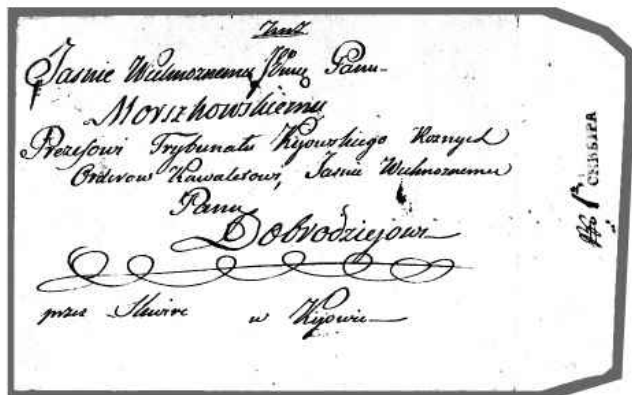 Jasnie Wielmoznemu Panu
Morszkowskiemu
Prezesowi Trybunału Kijowskiego Roznych
Orderow Kawalerowi, Jasnie Wielmoznemu
Panu
Dobrodziejowi
przez Skwire w Kijowie
СКВЫРА